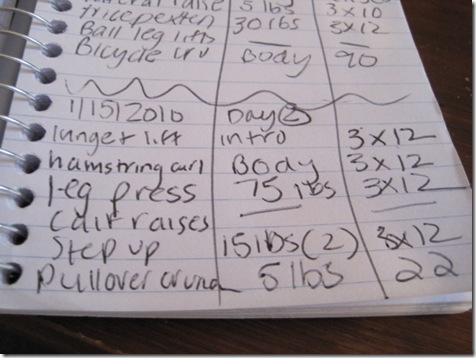 5 lbs 3x10
tricep exten 30 lbs 3x12
Ball leg lifts — 3x12
Bicycle Body 90
1/15/2010 Day 2
lunge + lift intro 3x12
hamstring curl Body 3x12
leg press 75 lbs 3x12
Calf raises — —
Step up 15lbs (2) 3x12
Pullover crunch 5 lbs 22